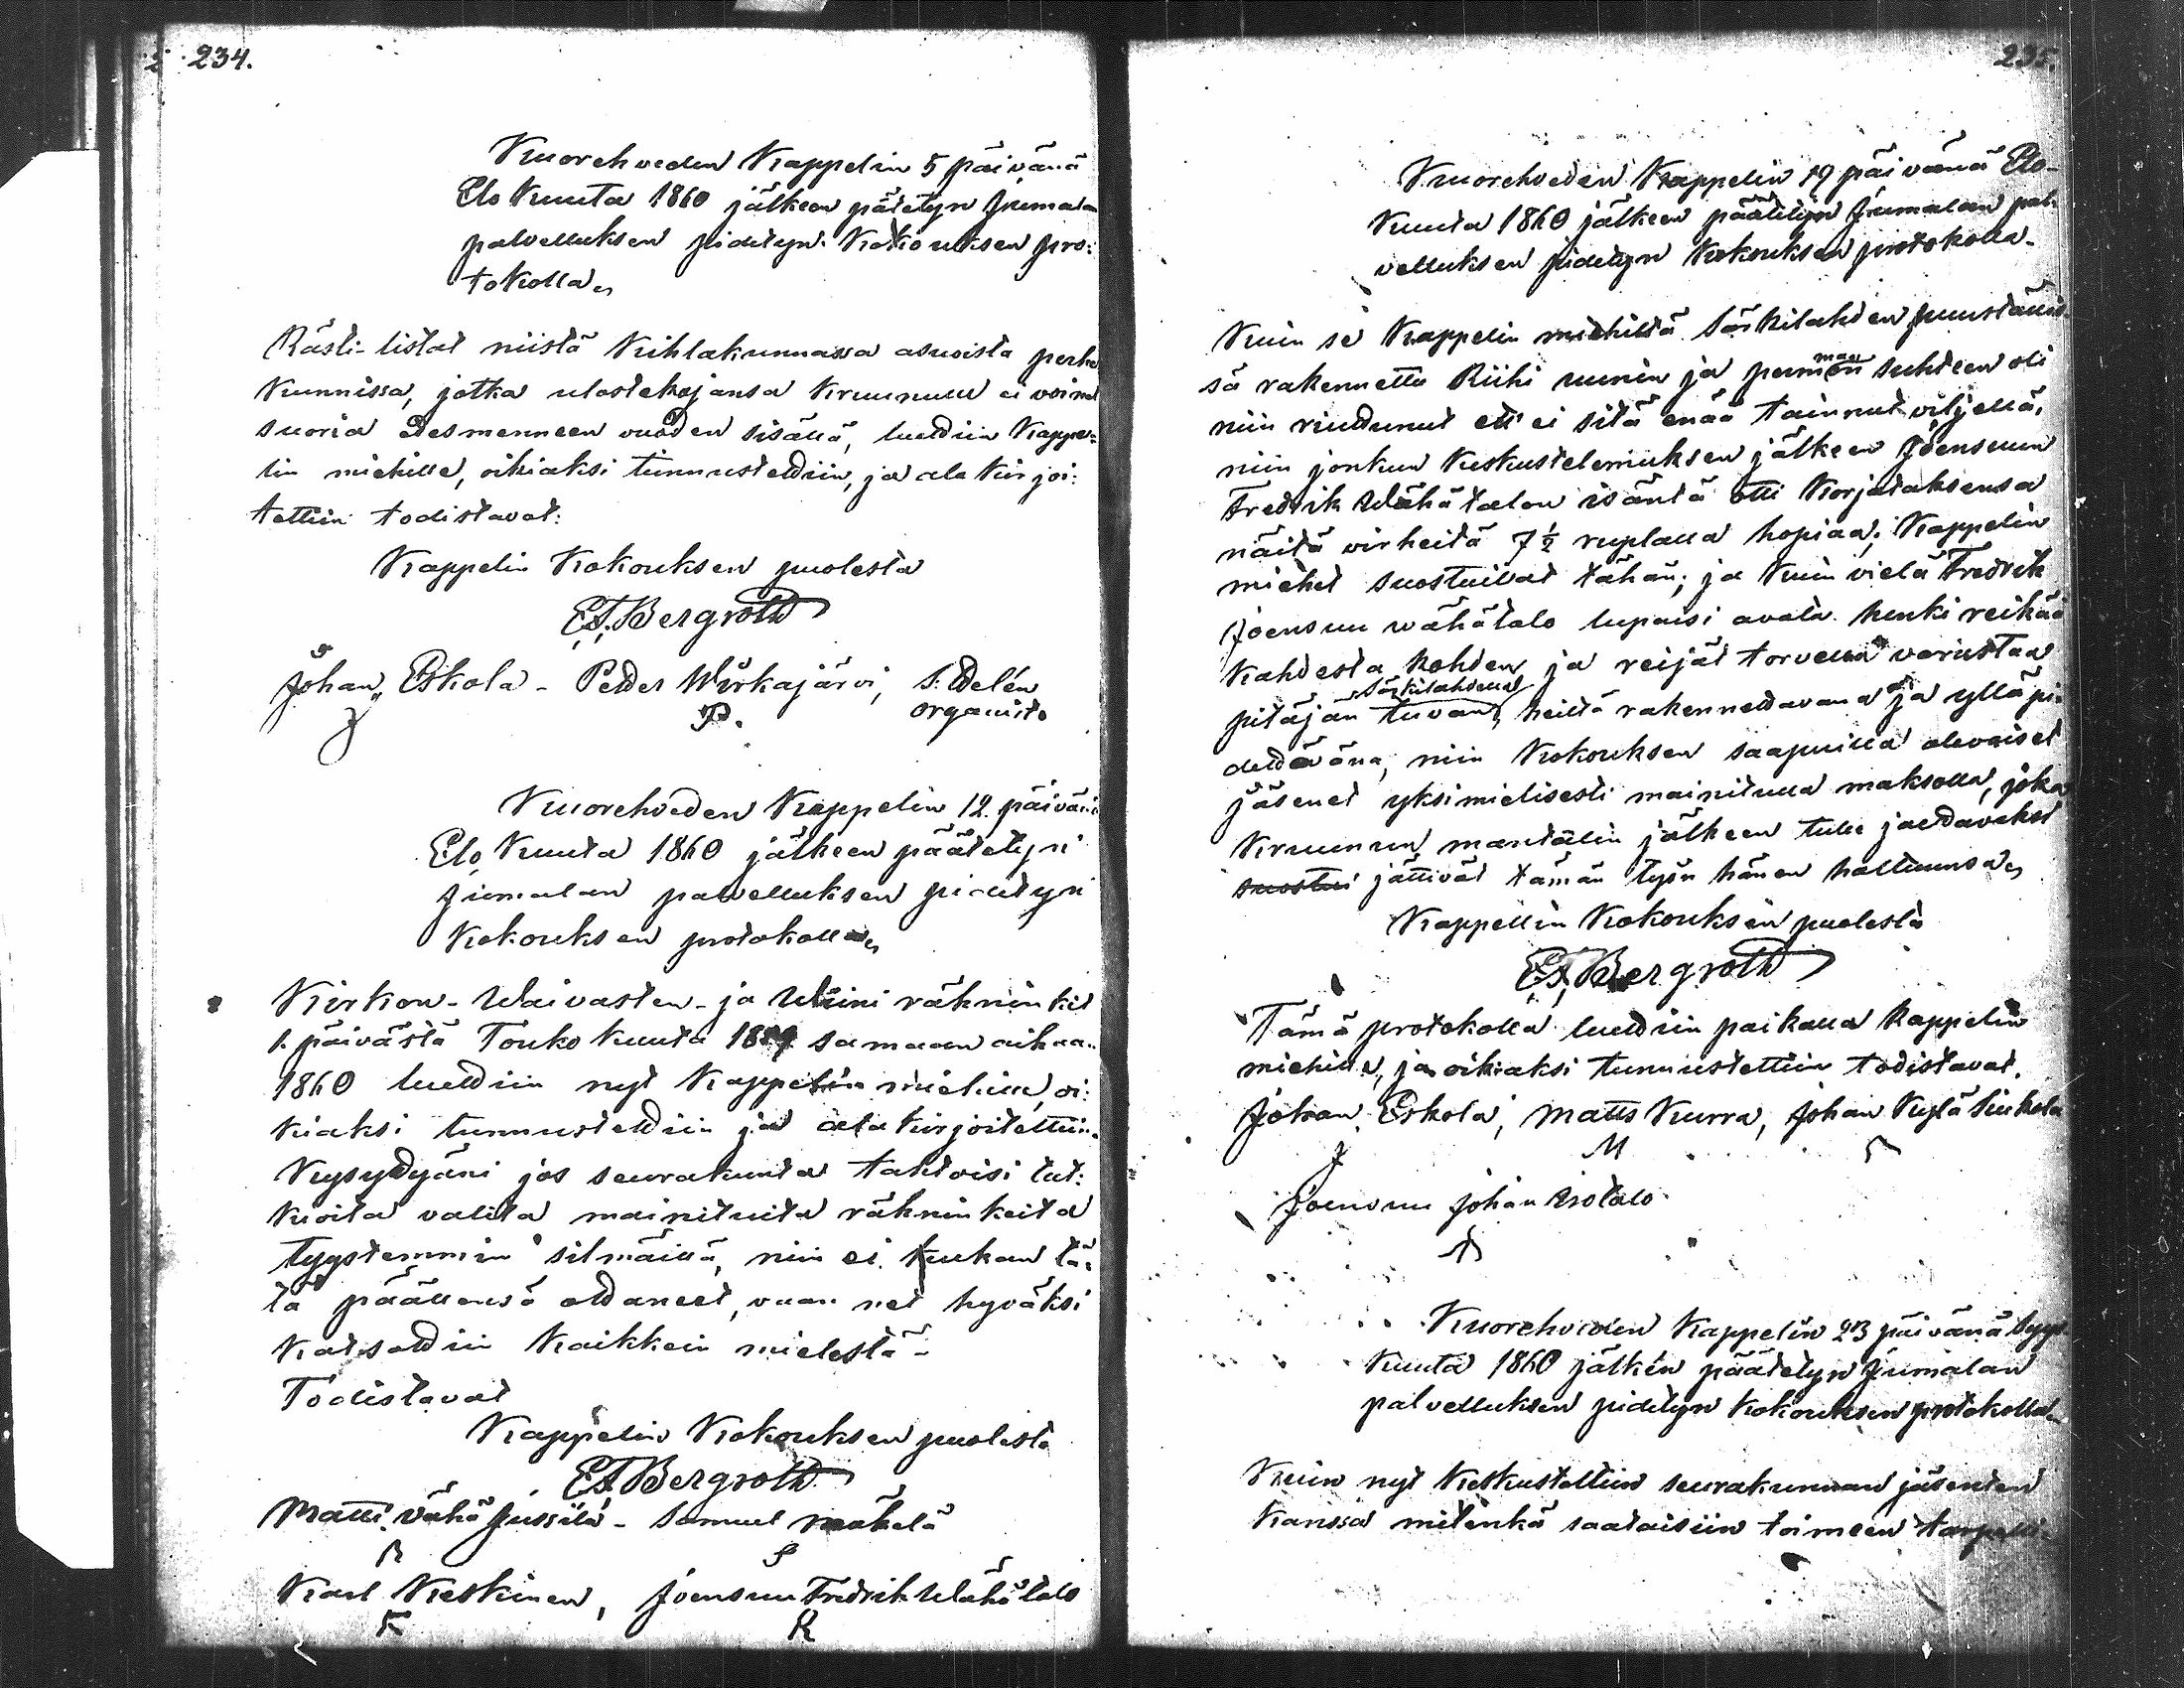 234.
Kuorehveden Kappelin 5 päivänä
Elo Kuuta 1860 jälkeen pätetyn Jumalan
palvelluksen pidetyn Kokouksen pro:
tokolla,,
Rästi-listat niistä Kihlakunnassa asuvista perhe
Kunnissa, jotka ulostekojansa Kruunulle ei voinet
suoria edesmenneen vuoden sisällä, luettiin Kappe-
lin miehille, oikiaksi tunnustettiin, ja ala kirjoi:
tettiin todistavat:
Kappelin Kokouksen puolesta
E.F. Bergroth
Johan Eskola - Petter Wirkajärvi, S: Idelén
J P. organist
Kuorehveden Kappelin 12. päivänä
Elo Kuuta 1860 jälkeen päätetyn
Jumalan palvelluksen pidetyn
Kokouksen protokolla,,
Kirkon- Waivasten- ja Wiini räkninkit
1. päivästä Touko Kuuta samaan aikaan
1860 luettiin nyt Kappelin miehille, oi:
kiaksi tunnustettiin ja ala kirjoitettiin.
Kysyttyäni jos seurakunta tahtoisi tut:
kioita valita mainituita räkninkeita
tyystemmin silmäillä, niin ei kukaan tä:
tä päällensä ottaneet, vaan net hyväksi
Katsottiin kaikkein mielestä -
Todistavat
Kappelin Kokouksen puolesta
E.F. Bergroth
Matti Vähä Jussila - Samuel Mäkelä
S
Karl Keskinen, Joensuu Fredrik Wähätalo
K R
235.
Kuorehveden Kappelin 19 päivänä Elo-
Kuuta 1860 jälkeen päätetyn Jumalan pal-
velluksen pidetyn Kokouksen protokolla-
Kuin se Kappelin miehiltä Särkilahden puuställis
sä rakennettu Riihi uunin ja suhteen oli
niin riudunut ett' ei sitä enää tainnut viljellä,
niin jonkun Keskustelemuksen jälkeen Joensuun
Fredrik Wähätalon isäntä otti Korjataksensa
näitä virheitä 7 ½ ruplalla hopiaa; Kappelin
miehet suostuivat tähän; ja Kuin vielä Fredrik
Joensuu wähätalo lupaisi avata henki reikää
Kahdesta kohden ja reijät torvella varustaa
Särkilahdella
pitäjän tuvan, heiltä rakennettavana ja ylläpi-
dettävänä, niin Kokouksen saapuilla olevaiset
jäsenet yksimielisesti mainitulla maksolla, joka
Kruunun mantalin jälkeen tulee jaettavaksi
suostui jättivät tämän työn hänen haltuunsa,,
Kappellin Kokouksen puolesta
E.F. Bergroth
Tämä protokolla luettiin paikalla Kappelin
miehille, ja oikiaksi tunnustettiin todistavat.
Johan Eskola, Matts Kurra, Johan Kylä Siukola
J M
Joensuu Johan Isotalo
Kuorehveden Kappelin 23 päivänä Syys
Kuuta 1860 jälkén päätetyn Jumalan
palvelluksen pidetyn Kokouksen protokolla-
Kuin nyt Keskusteltiin seurakunnan jäsenten
Kanssa mitenkä saataisiin toimeen